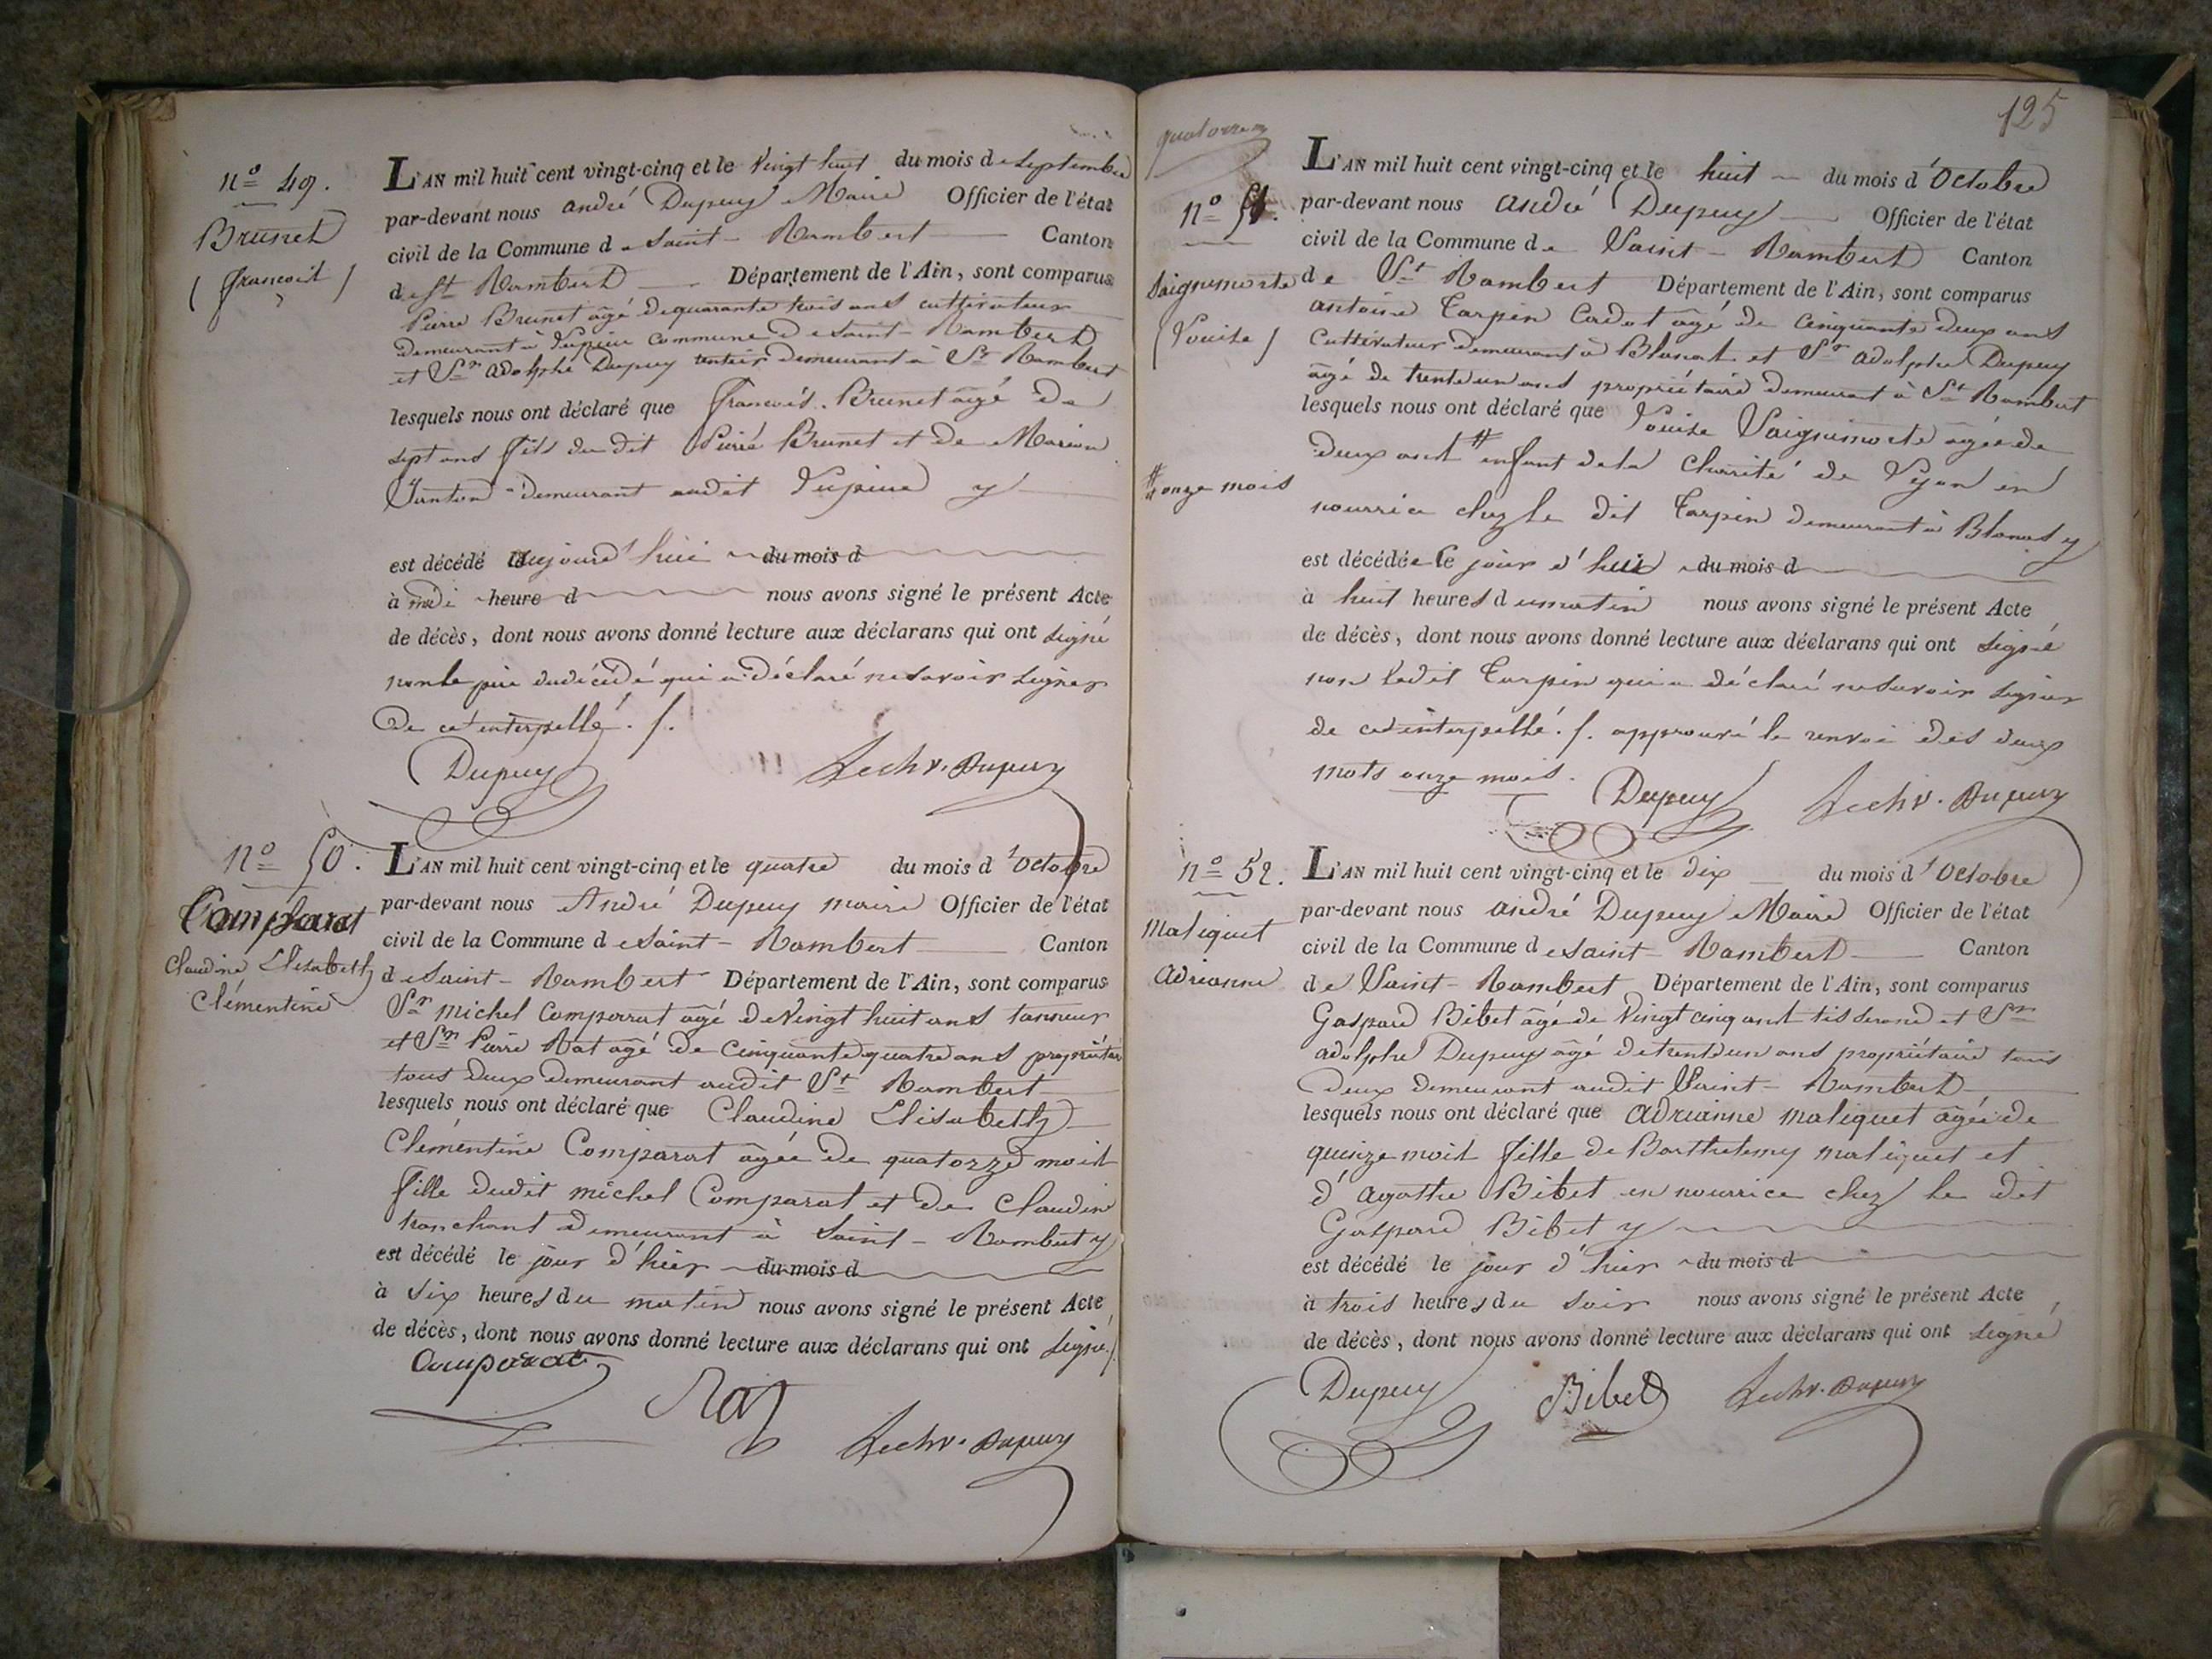 n.o 49.
Brunet
(françois)
L'AN mil huit cent vingt-cinq et le vingt huit du mois de Septembre
par-devant nous andré Dupuy Maire Officier de l'état
civil de la Commune de Saint-Rambert Canton
de St Rambert Département de l'Ain, sont comparus
Pierre Brunet âgé de quarante trois ans cultivateur
demeurant à commune de Saint-Rambert
et Sr adolphe Dupuy rentier demeurant à St Rambert
lesquels nous ont déclaré que françois Brunet âgé de
sept ans fils du dit Pierre Brunet et de Marion
demeurant audit y
est décédé aujourd'hui du mois d
à midi heure d nous avons signé le présent Acte
de décès, dont nous avons donné lecture aux déclarans qui ont signé
non le père du décédé qui a déclaré ne savoir signer
de ce interpellé.
Dupuy
Dupuy
n.o 50.
Comparat
Claudine Elisabeth
Clémentine
L'AN mil huit cent vingt-cinq et le quatre du mois d'Octobre
par-devant nous André Dupuy maire Officier de l'état
civil de la Commune de Saint-Rambert Canton
de Saint-Rambert Département de l'Ain, sont comparus
Sr michel Comparat âgé de vingt huit ans tanneur
et Sr Pierre Rat âgé de cinquante quatre ans propriétaire
tous deux demeurant audit St Rambert
lesquels nous ont déclaré que Claudine Elisabeth
Clémentine Comparat âgée de quatorze mois
fille dudit michel Comparat et de Claudine
tranchant demeurant à Saint-Rambert y
est décédé le jour d'hier du mois d
à six heures du matin nous avons signé le présent Acte
de décès, dont nous avons donné lecture aux déclarans qui ont signé
Comparat
Rat
Dupuy
125
quatorze
n.o 51.
Saignemorte
(Louise)
L'AN mil huit cent vingt-cinq et le huit du mois d'Octobre
par-devant nous andré Dupuy Officier de l'état
civil de la Commune de Saint-Rambert Canton
de St Rambert Département de l'Ain, sont comparus
antoine Carpin Cadet âgé de cinquante deux ans
cultivateur demeurant à Blanas et Sr adolphe Dupuy
âgé de trente un ans propriétaire demeurant à St Rambert
lesquels nous ont déclaré que Louise Saignemorte âgée de
deux ans # enfant de la charité de Lyon en
# onze mois
nourrice chez le dit Carpin demeurant à Blanas y
est décédée le jour d'hui du mois d
à huit heures du matin nous avons signé le présent Acte
de décès, dont nous avons donné lecture aux déclarans qui ont signé
non ledit Carpin qui a déclaré ne savoir signer
de ce interpellé. approuvé le renvoi des deux
mots onze mois.
Dupuy
Dupuy
n.o 52.
Maliquet
adrianne
L'AN mil huit cent vingt-cinq et le dix du mois d'Octobre
par-devant nous andré Dupuy Maire Officier de l'état
civil de la Commune de Saint-Rambert Canton
de Saint-Rambert Département de l'Ain, sont comparus
Gaspard Bibet âgé de vingt cinq ans tisserand et Sr
adolphe Dupuy âgé de trente un ans propriétaire tous
deux demeurant audit Saint-Rambert
lesquels nous ont déclaré que adrianne maliquet âgée de
quinze mois fille de Barthelemy maliquet et
d'agathe Bibet en nourrice chez le dit
Gaspard Bibet y
est décédé le jour d'hier du mois d
à trois heures du soir nous avons signé le présent Acte
de décès, dont nous avons donné lecture aux déclarans qui ont signé
Dupuy
Bibet
Dupuy